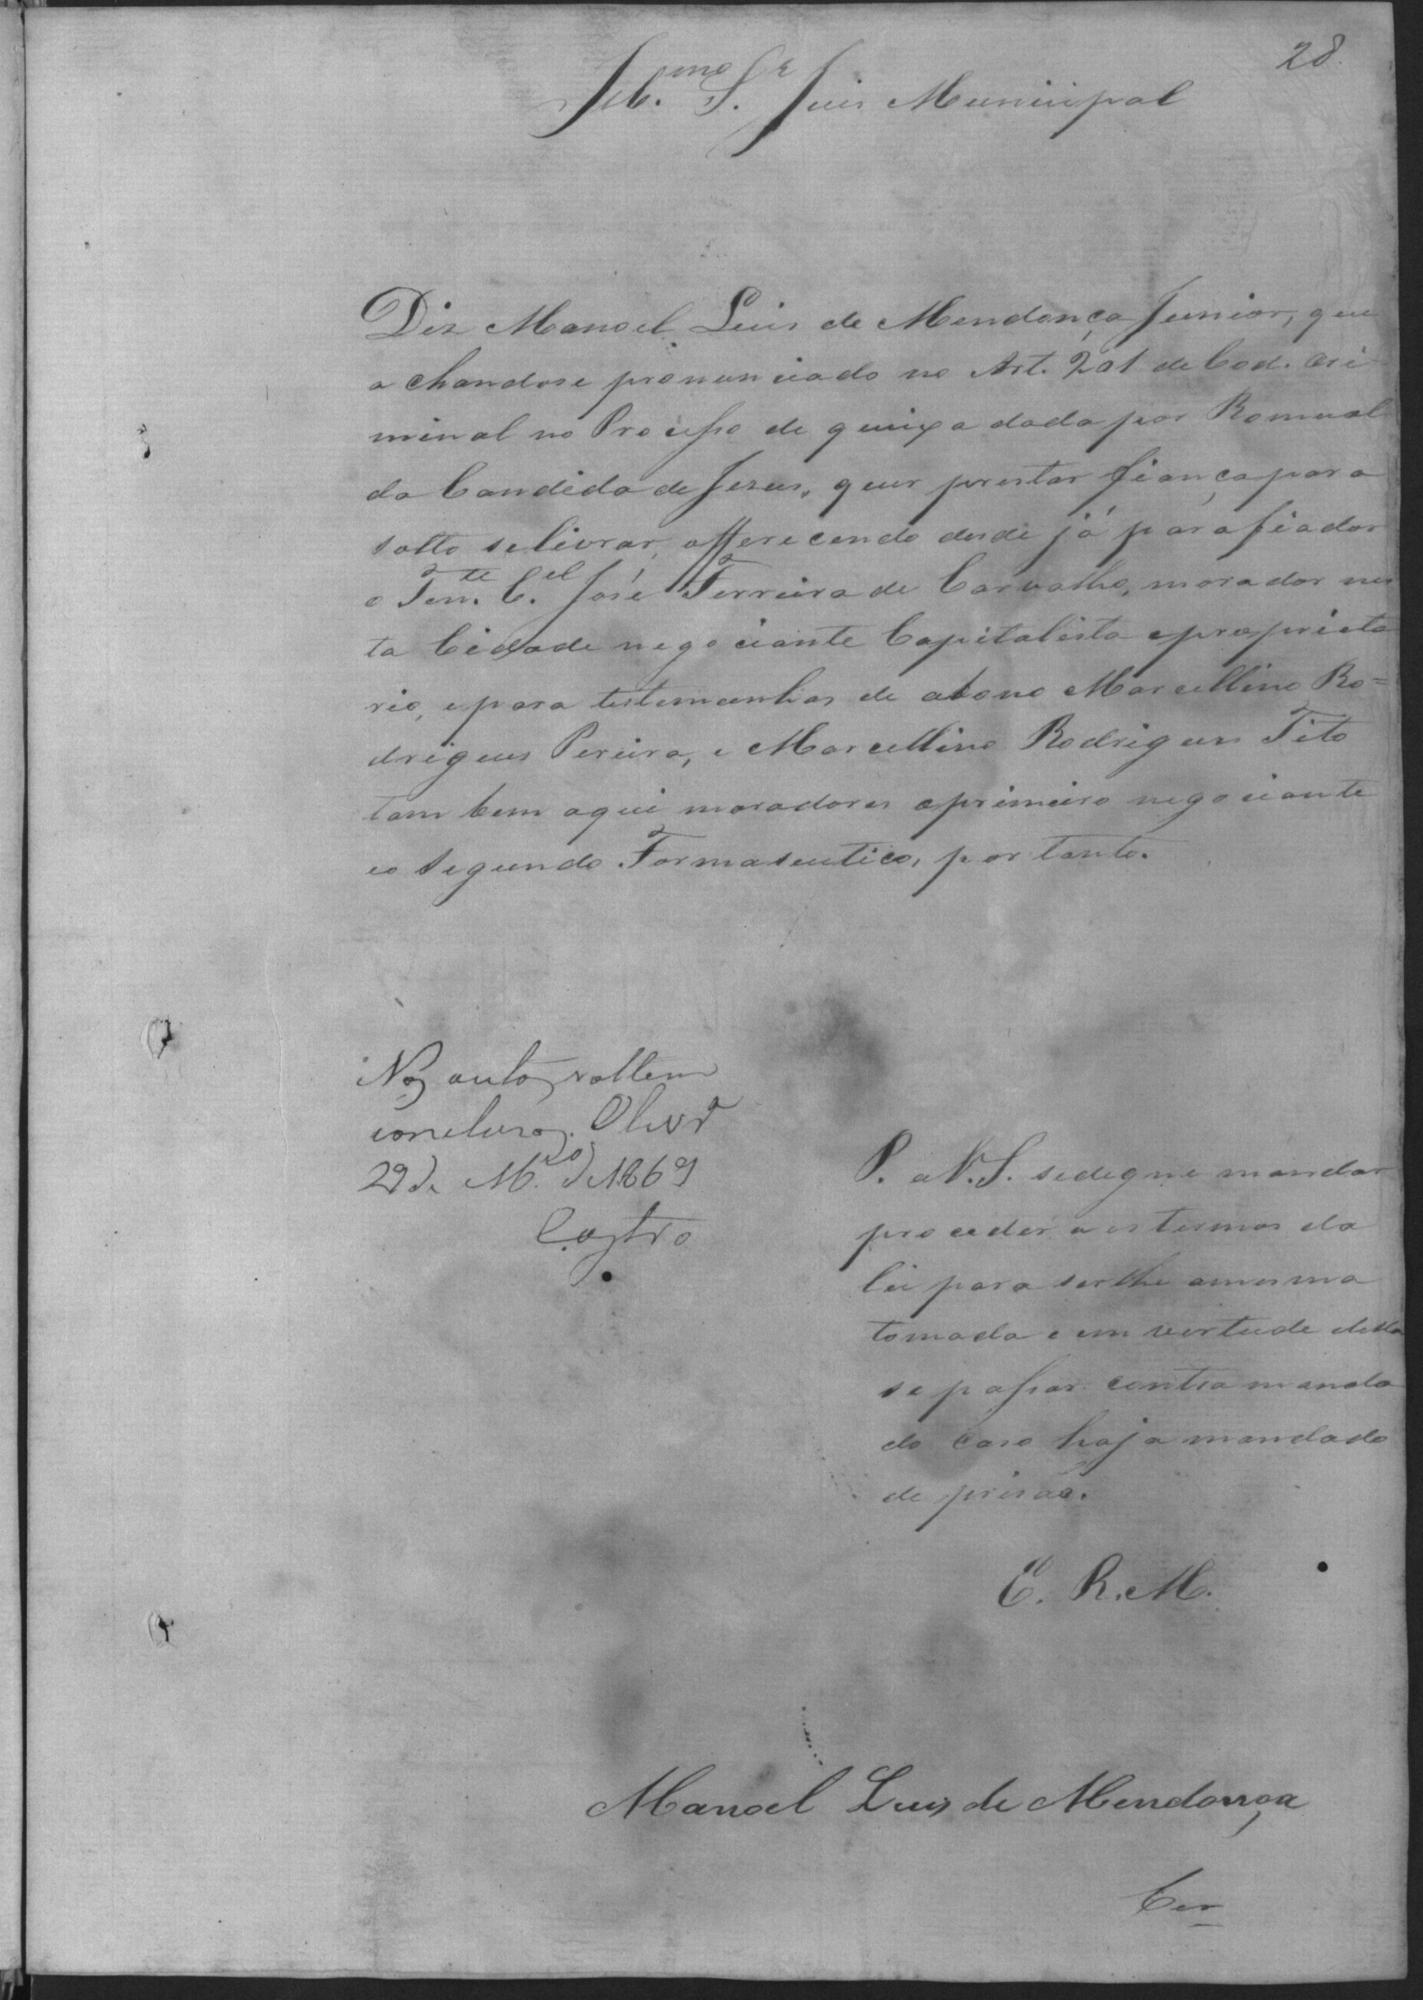 28.
Ill.mo S.r Juis Municipal
Diz Manoel Luis de Mendonça Junior, que
achandose pronunciado no Art. 201 de Cod. Cri-
minal no Processo de queixa dada por Romual
da Candida de Jesus, quer prestar fiança para
solto se livrar, offerecendo desde já para fiador
o Ten.te C.el José Ferreira de Carvalho, morador nes
ta Cidade negociante Capitalista e proprieta
rio, e para testemunhas de abono Marcellino Ro=
drigues Pereira, e Marcellino Rodrigues Tito
tam bem aqui moradores o primeiro negociante
eo segundo Farmaseutico, por tanto.
Nos autos voltem
conclusos. Olivr.a
29 de M.ço de 1869
Castro
P. a V. S. se degne mandar
proceder a os termos da
lei para serlhe amesma
tomada e em vertude della
se passar contra manda
do caso haja mandado
de prisão.
E. R. M.
Manoel Luis de Mendonça